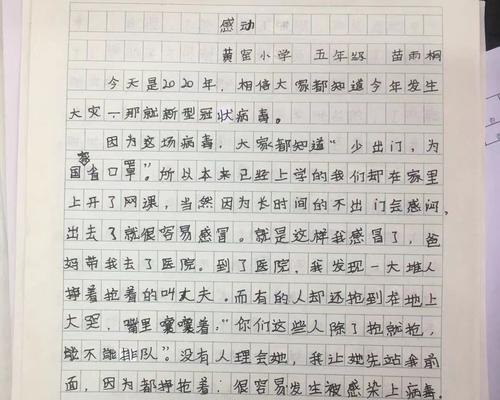 感动
黄窑小学 五年级 苗雨桐
今天是2020年，相信大家都知道今年发生
大灾—那就新型冠状病毒。
因为这场病毒，大家都知道“少出门，为
国省口罩”。所以本来已经上学的我们却在家里
上开了网课，当然因为长时间的不出门会感闷，
出去了就很容易感冒。就是这样我感冒了，爸
妈带我去了医院。到了医院，我发现一大堆人
挣着抢着的叫丈夫。而有的人却还抢到在地上
大哭，嘴里嚷嚷着，“你们这些人除了抢就抢，
不能排队”。没有人理会她，我让她先站我前
面，因为都挣抢着，很容易发生被感染上病毒。